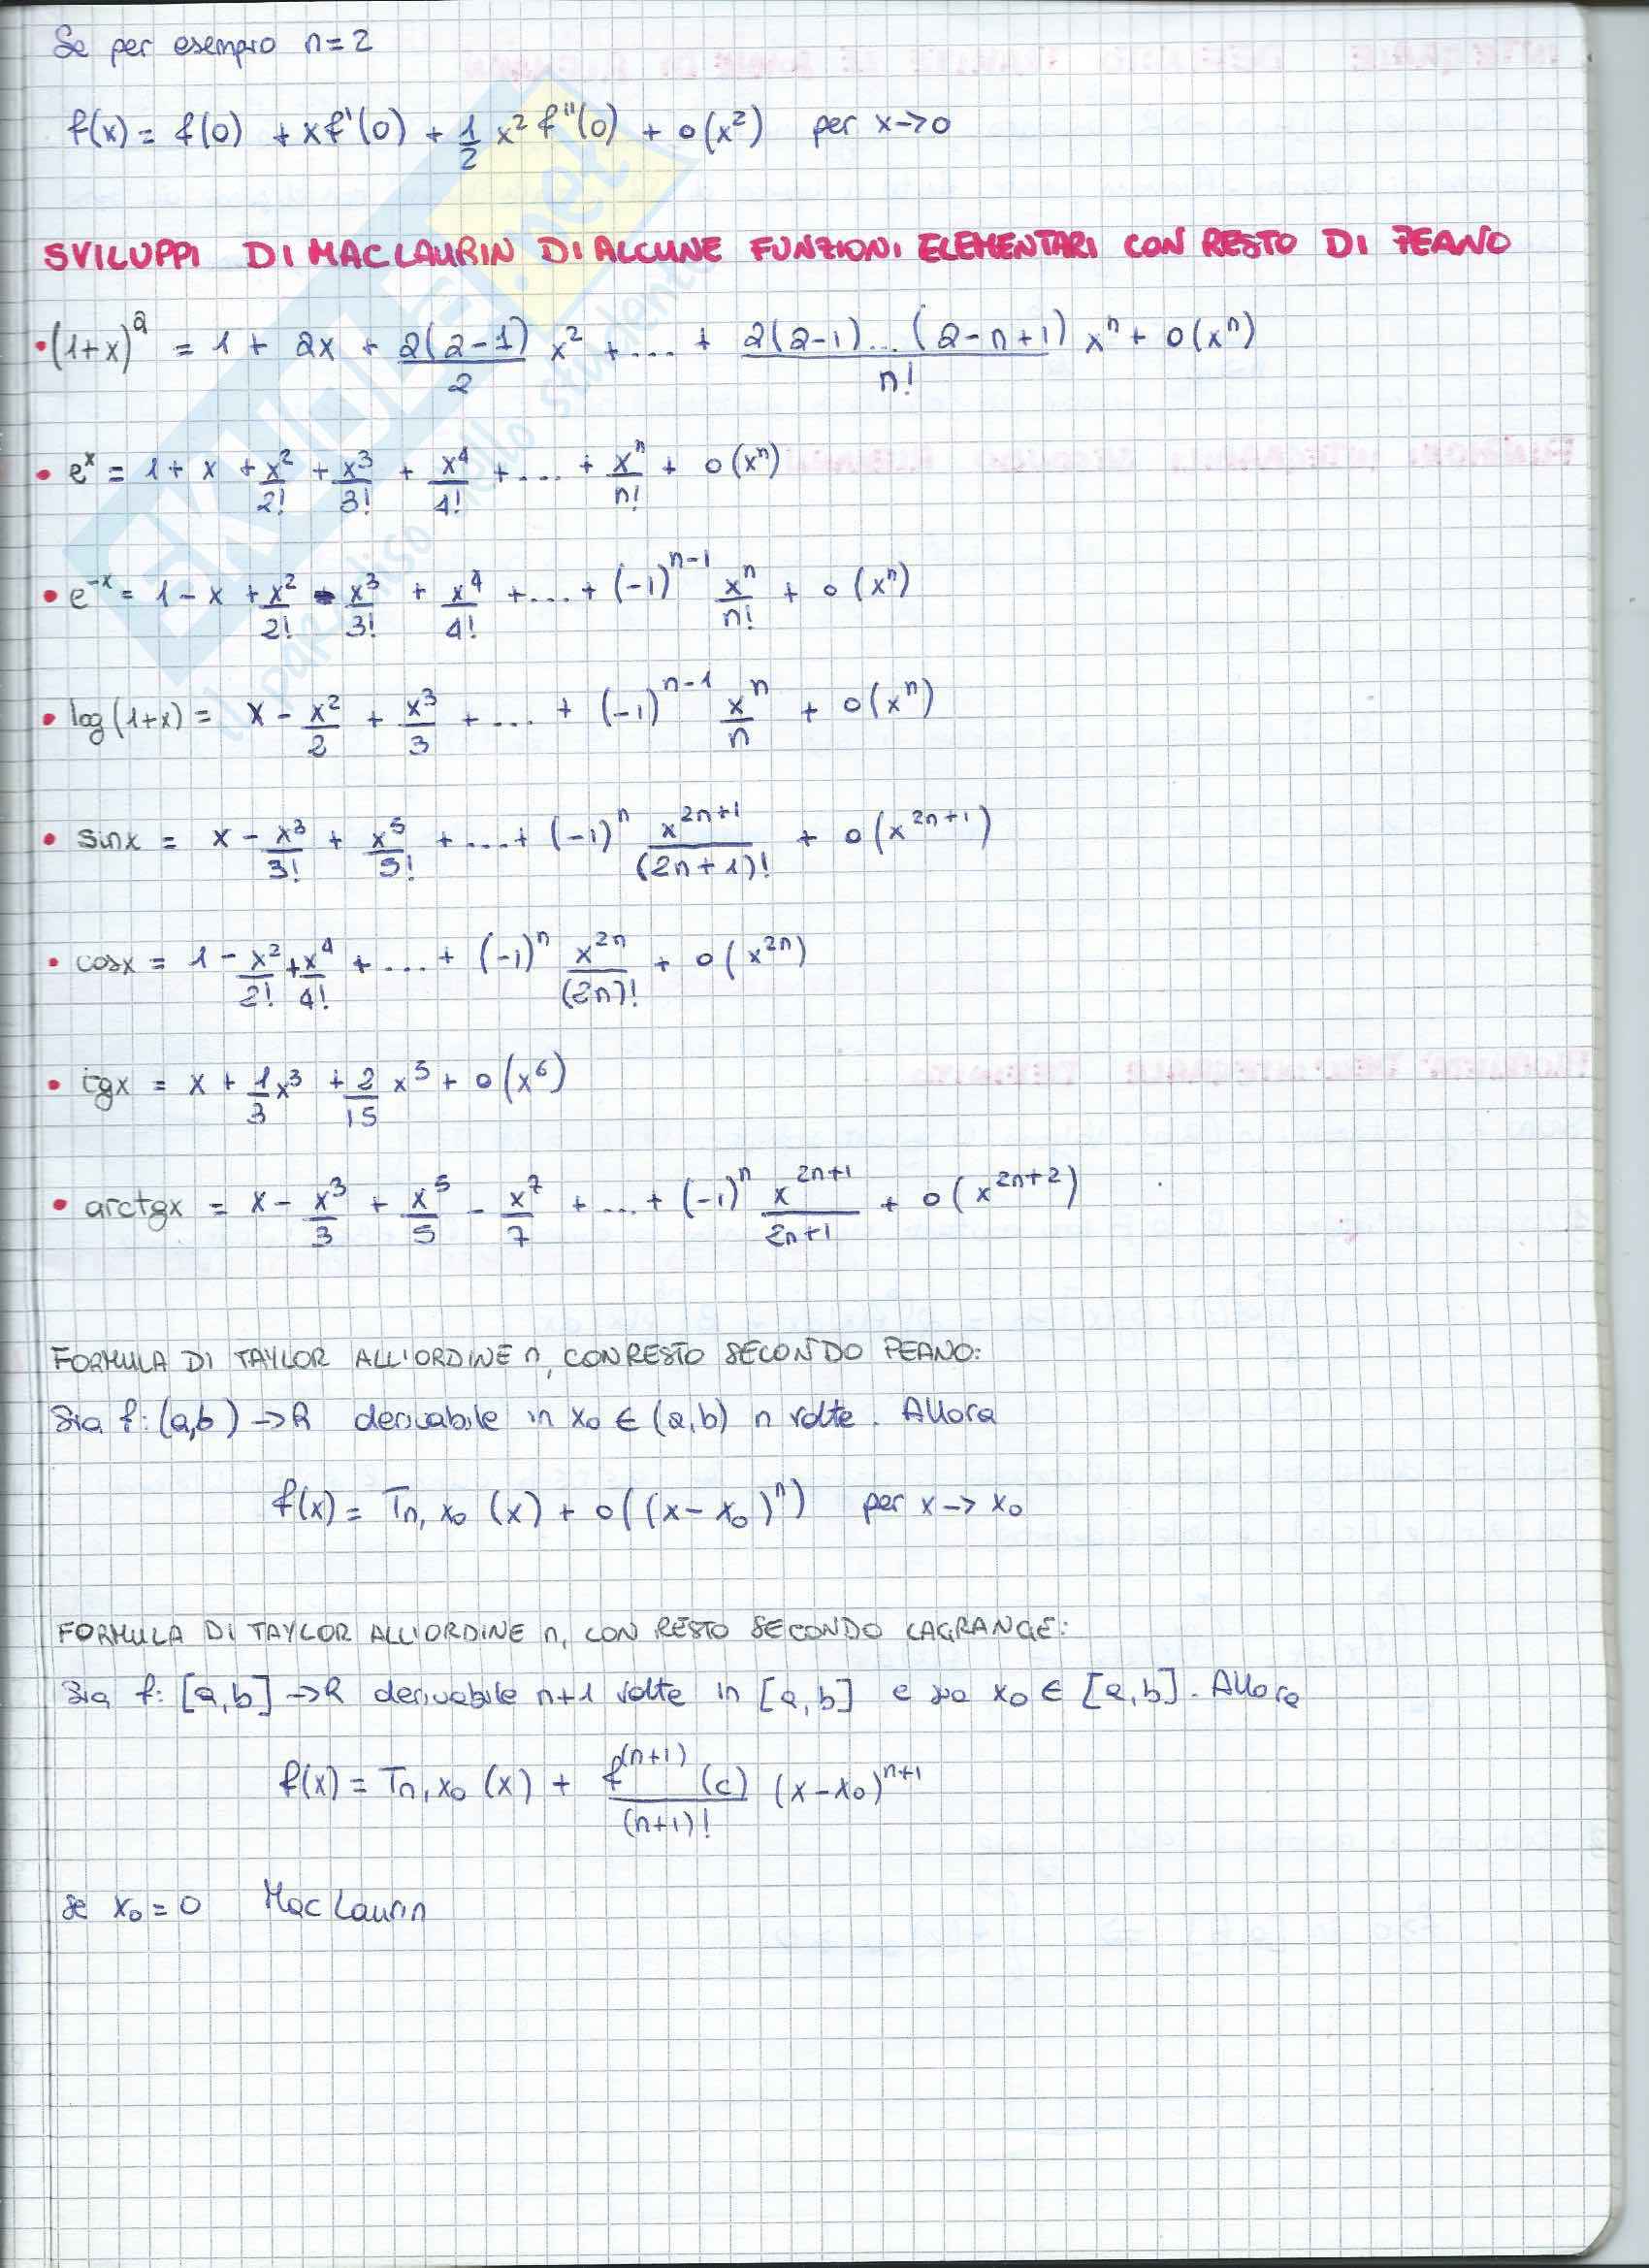 Se per esempio n=2
f(x) = f(0) + xf'(0) + 1/2 x² f''(0) + o(x²) per x→0
SVILUPPI DI MACLAURIN DI ALCUNE FUNZIONI ELEMENTARI CON RESTO DI PEANO
• (1+x)^a = 1 + ax + a(a-1)/2 x² + .... + a(a-1)...(a-n+1)/n! xⁿ + o(xⁿ)
• eˣ = 1 + x + x²/2! + x³/3! + x⁴/4! + .... + xⁿ/n! + o(xⁿ)
• e⁻ˣ = 1 - x + x²/2! - x³/3! + x⁴/4! + .... + (-1)ⁿ⁻¹ xⁿ/n! + o(xⁿ)
• log(1+x) = x - x²/2 + x³/3 + .... + (-1)ⁿ⁻¹ xⁿ/n + o(xⁿ)
• sinx = x - x³/3! + x⁵/5! + ....+ (-1)ⁿ x²ⁿ⁺¹/(2n+1)! + o(x²ⁿ⁺¹)
• cosx = 1 - x²/2! + x⁴/4! + .... + (-1)ⁿ x²ⁿ/(2n)! + o(x²ⁿ)
• tgx = x + 1/3 x³ + 2/15 x⁵ + o(x⁶)
• arctgx = x - x³/3 + x⁵/5 - x⁷/7 + ....+ (-1)ⁿ x²ⁿ⁺¹/2n+1 + o(x²ⁿ⁺²)
FORMULA DI TAYLOR ALL'ORDINE n, CON RESTO SECONDO PEANO:
Sia f: (a,b) → R derivabile in x₀ ∈ (a,b) n volte. Allora
f(x) = Tn, x₀ (x) + o((x-x₀)ⁿ) per x → x₀
FORMULA DI TAYLOR ALL'ORDINE n, CON RESTO SECONDO LAGRANGE:
Sia f: [a,b] → R derivabile n+1 volte in [a,b] e sia x₀ ∈ [a,b]. Allora
f(x) = Tn, x₀ (x) + f⁽ⁿ⁺¹⁾(c)/(n+1)! (x-x₀)ⁿ⁺¹
se x₀ = 0 MacLaurin